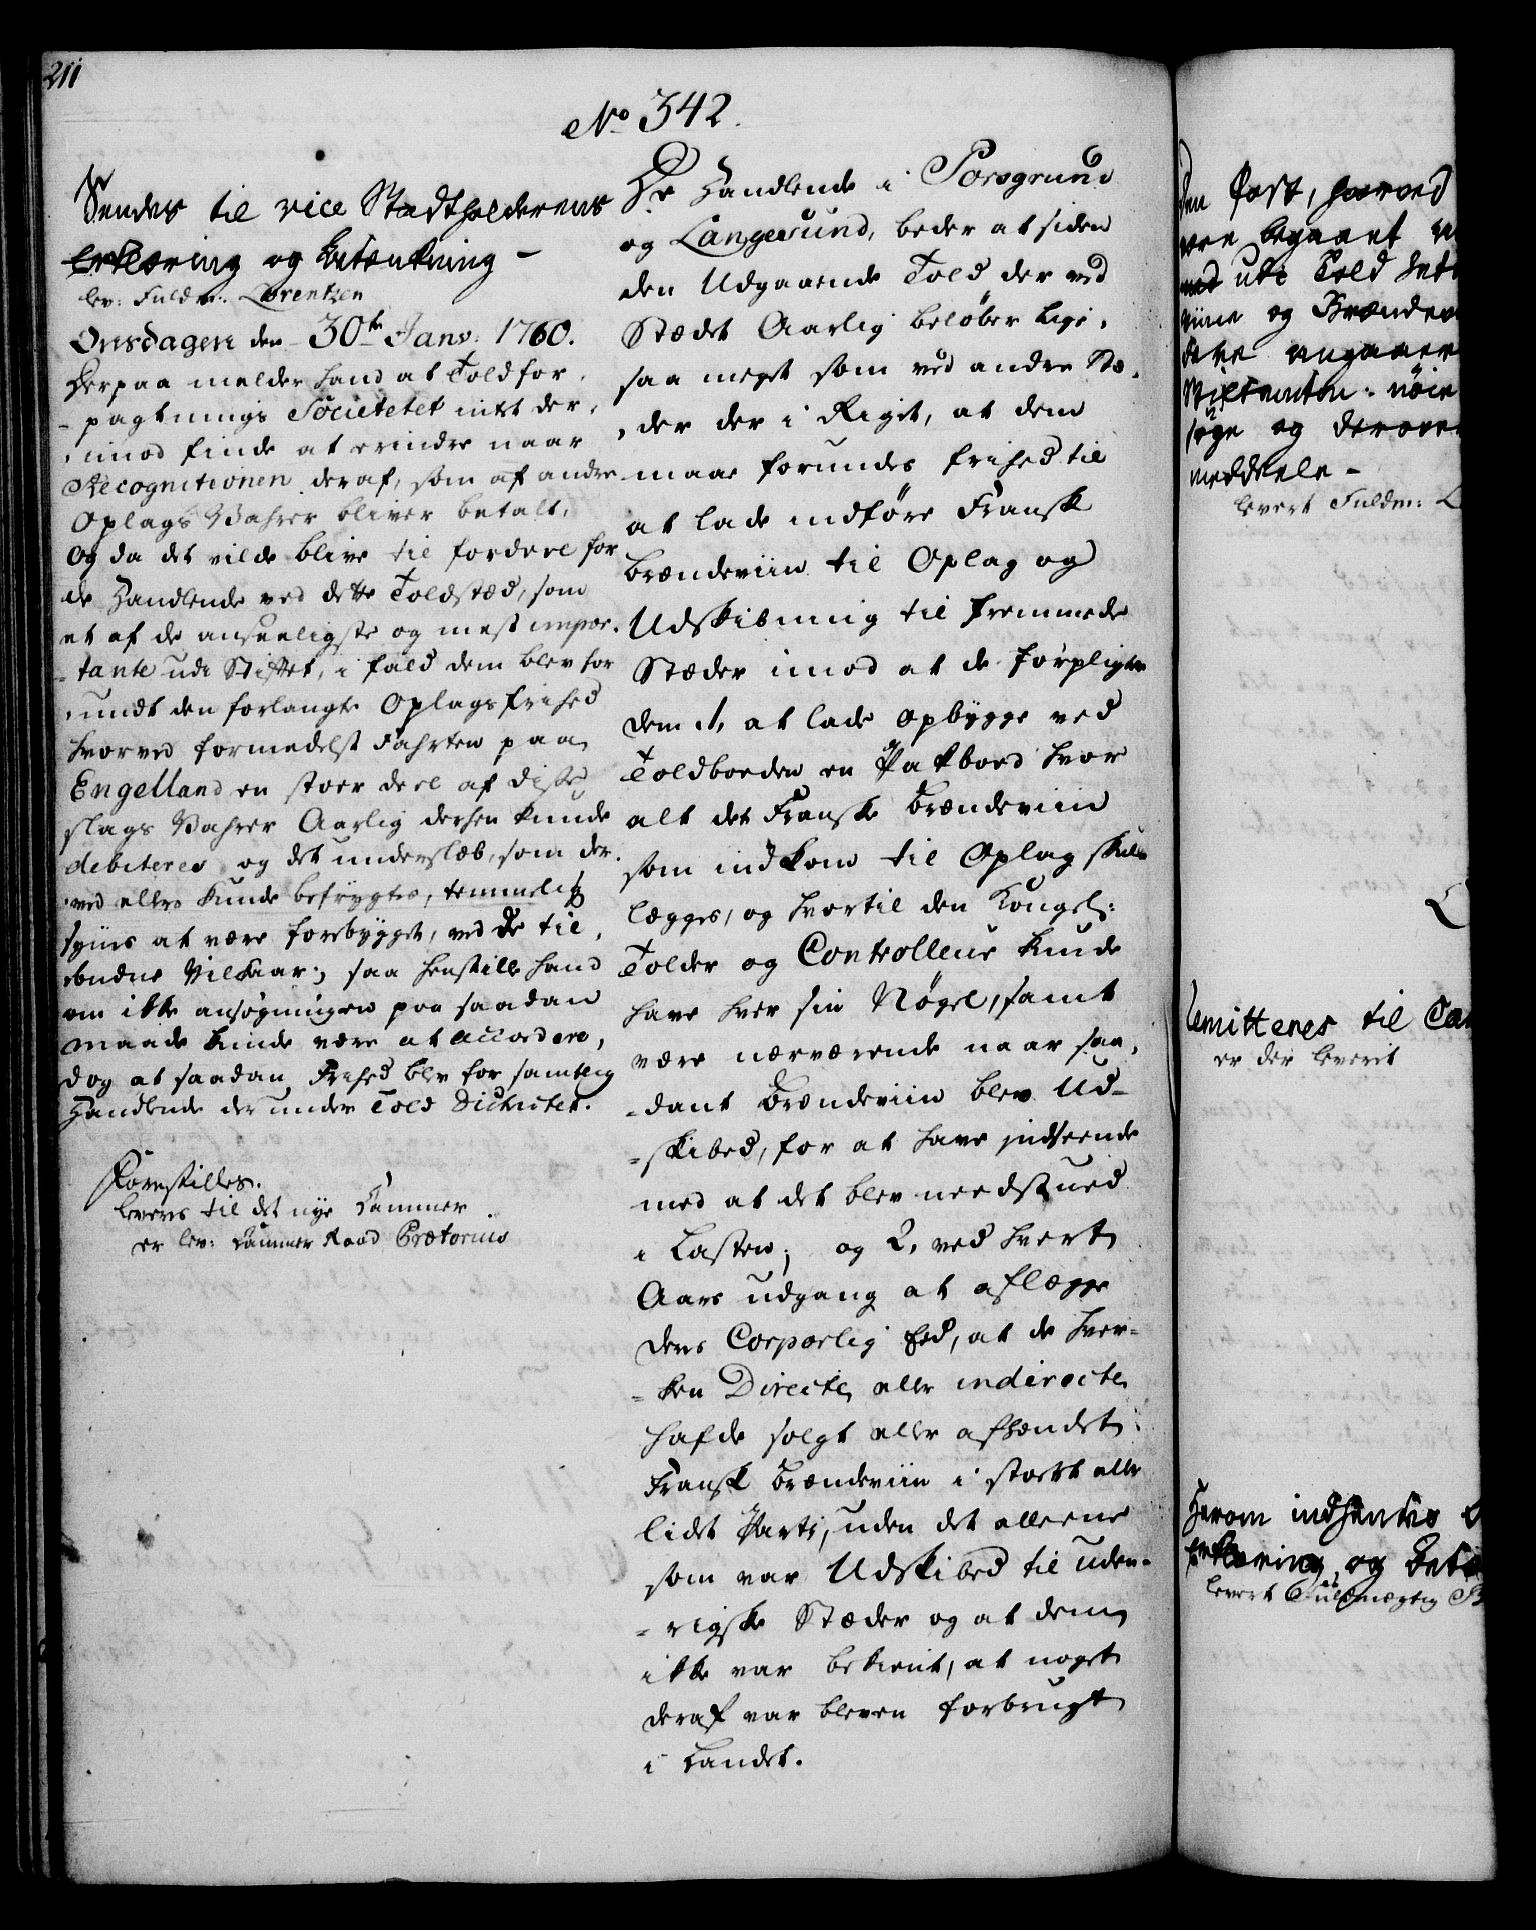 211
No 342.
Sendes til vice Stadtholderens
Erklæring og Betænkning -
lev: Fuldm: Lorentzen
Onsdagen den 30te Janv: 1760.
Herpaa melder hand at Toldfor,
-pagtnings Societetet intet der,
,imod finde at erindre naar
Recognitionen deraf, som af andre
Oplags Vahrer bliver betalt,
Og da det vilde blive til fordeel for
de Handlende ved dette Toldsted, som
et af de anseeligste og mest impor,
-tante udi Stiftet, i fald dem blev for
,undt den forlangte Oplagsfrihed
hvorved formedelst Fahrten paa
Engelland en stoer deel af disse
slags Vahrer Aarlig derhen kunde
debiteres og det underslæb, som der,
,ved ellers kunde befrygtes, temmelig
synes at være forebygget, ved de til,
,budne Vilkaar; saa henstille hand
om ikke ansøgningen paa saadan
maade kunde være at accordere,
dog at saadan Frihed blev for samtlig
Handlende der under Told Districtet.
Forestilles.
leveres til det nye Kammer
er lev: Kammer Raad Prætorius
De Handlende i Porsgrund
og Langesund, beder at siden
den Udgaaende Told der ved
Stædet Aarlig beløber lige,
saa meget som ved andre Stæ,
,der der i Riget, at dem
maae forundes frihed til
at lade indføre Fransk
Brændeviin til Oplag og
Udskibning til fremmede
Stæder imod at de forpligter
dem 1, at lade opbygge ved
Toldboeden en Pakboed hvor
alt det Franske Brændeviin
som indkom til Oplag skulle
lægges, og hvortil den Kongel:
Tolder og Controlleur kunde
have hver sin Nøgel, samt
være nærværende naar saa,
-dant Brændeviin blev Ud-
-skibed, for at have indseende
med at det blev needstued
i Lasten; og 2, ved hvert
Aars udgang at aflægge
deres Corporlig Eed, at de hver-
-ken Directe eller indirecte
hafde solgt eller afhændet
Fransk Brændeviin i stort eller
lidet Parti, uden det alleene
som var Udskibed til uden-
-rigske Stæder og at dem
ikke var bekient, at noget
deraf var bleven forbrugt
i Landet.
den Post, hvorved
være begaaet
udi Told
viine og Brændev
søge og derover
meddeele -
levert Fuldm: L
Remitteres til Cam
er der leverit
Herom indhentes
Erklæring og Betæ
levert Fuldmægtig